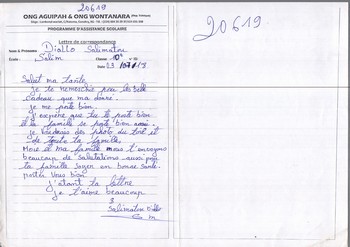 20619
ONG AGUIPAH & ONG WONTANARA
PROGRAMME D'ASSISTANCE SCOLAIRE
Lettre de correspondance
Nom & Prénoms Diallo Salimatou
Ecole: Salim Classe 10e
Date
Salut ma tante
je te remercie pour les belle
cadeau que ma donné.
je me porte bien.
J'espère que tu te porte bien
et ta famille se porte bien aussi
je des photo du toit et
de toute ta famille.
Moie et ma famille nous t'envoyons
beaucoup de salutations aussi pour
ta famille soyez en bonne santé.
portez vous bien
J'attent ta lettre
je t'aime beaucoup
Salimatou Diallo
20619